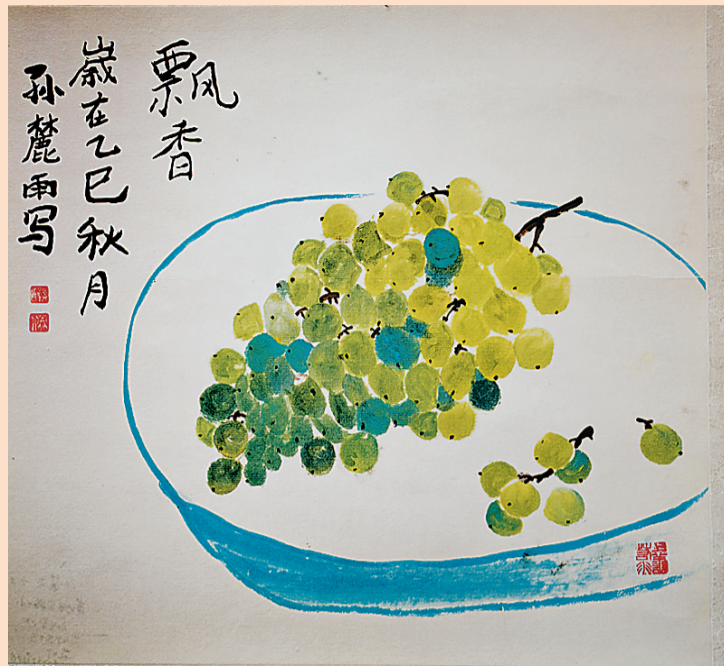 飘香
嵗在乙巳秋月
孙麓雨写